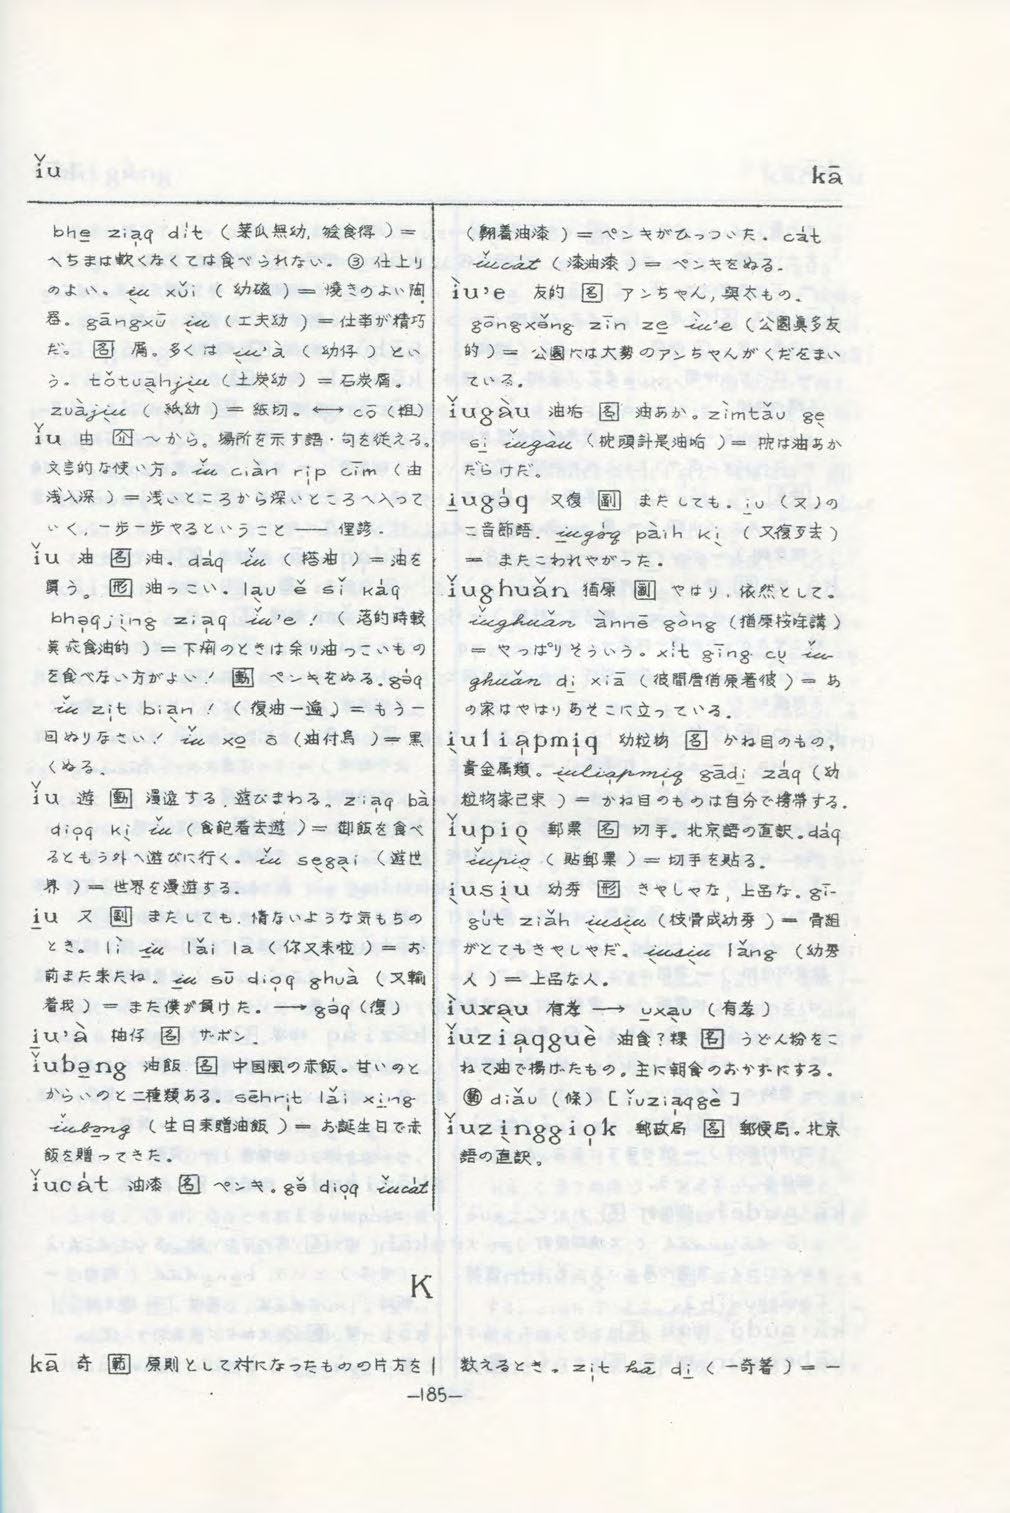 ǐu
kā
bhe̱ zia̍q di̍t (菜瓜無幼，獪食得)＝
へちまは軟くなくては食べられない。③ 仕上り
のよい。iu xǔi (幼磁)＝焼きのよい陶
器。gāngxū iu (工夫幼)＝仕事が精巧
だ。名 屑。多くは iu'à (幼仔) とい
う。tǒtuạhjịu (土炭幼)＝石炭屑。
zuàjịu (紙幼)＝紙切。⟷ cō (粗)
ǐu 由 介 〜から。場所を示す語・句を従える。
文言的な使い方。ǐu ciàn ri̍p cīm (由
浅入深)＝浅いところから深いところへ入って
いく，一歩一歩やるということ――俚諺．
ǐu 油 名 油。daq ǐu (搭油)＝油を
買う。形 油っこい。lạu ě sí ka̍q
bhọqjịng zia̍q ǐu'e！(落的時較
莫 食油的)＝下痢のときは余り油っこいもの
を食べない方がよい！ 動 ペンキをぬる．gə̍q
ǐu zi̍t biạn！(復油一遍)＝もう一
回ぬりなさい！ ǐu xo̱ ō (油付烏)＝黒
くぬる．
ǐu 遊 動 漫遊する．遊びまわる．zia̍q bà
diọq kị ǐu (食飽着去遊)＝御飯を食べ
るともう外へ遊びに行く。ǐu sẹgại (遊世
界)＝世界を漫遊する。
i̱u 又 副 またしても．情ないような気もちの
とき。lì i̱u lǎi la (你又来啦)＝お
前また来たね．i̱u sū diọq ghuà (又輸
着我)＝また僕が負けた。⟶ gə̍q (復)
i̱u'à 柚仔 名 ザボン．
ǐubə̱ng 油飯 名 中国風の赤飯。甘いのと
からいのと二種類ある．sēhri̍t lǎi xi̱ng
ǐubə̱ng (生日来贈油飯)＝お誕生日で赤
飯を贈ってきた。
ǐucát 油漆 名 ペンキ。gǒ diọq ǐucát
(翻着油漆)＝ペンキがひっついた．cát
ǐucát (漆油漆)＝ペンキをぬる．
ìu'e 友的 名 アンちゃん，與太もの．
gōngxə̌ng zīn ze̱ ìu'e (公園真多友
的)＝公園には大勢のアンちゃんがくだをまい
ている．
ǐugàu 油垢 名 油あか。zìmtǎu ge̱
si̱ ǐugàu (枕頭 是油垢)＝枕は油あか
だらけだ。
i̱ugə̍q 又復 副 またしても．i̱u (又)の
二音節語．i̱ugə̍q pàih kị (又復歹去)
＝またこわれやがった．
ǐughuǎn 猶原 副 やはり．依然として．
ǐughuǎn ànnē gòng (猶原 講)
＝やっぱりそういう。xi̍t gīng cụ ǐu-
ghuǎn di̱ xiā (彼間厝猶原着彼)＝あ
の家はやはりあそこに立っている．
ịuliạpmịq 幼粒物 名 かね目のもの，
貴金属類。ịuliạpmịq gādị zảq (幼
粒物家己束)＝かね目のものは自分で携帯する．
ǐupịo 郵票 名 切手．北京語の直訳．dáq
ǐupịo (貼郵票)＝切手を貼る．
ịusịu 幼秀 形 きやしやな，上品な．gī-
gu̍t ziǎh ịusịu (枝骨成幼秀)＝骨組
がとてもきやしやだ．ịusịu lǎng (幼秀
人)＝上品な人．
ìuxạu 有孝 ⟶ ụxạu (有孝)
ǐuziạqguè 油食？粿 名 うどん粉をこ
ねて油で揚げたもの。主に朝食のおかずにする。
範 diǎu (條) [ǐuziạqgè]
ǐuzịnggiọk 郵政局 名 郵便局。北京
語の直訳．
K
kā 奇 範 原則として対になったものの片方を
数えるとき．zi̍t kā di̱ (一奇箸)＝一
—185—